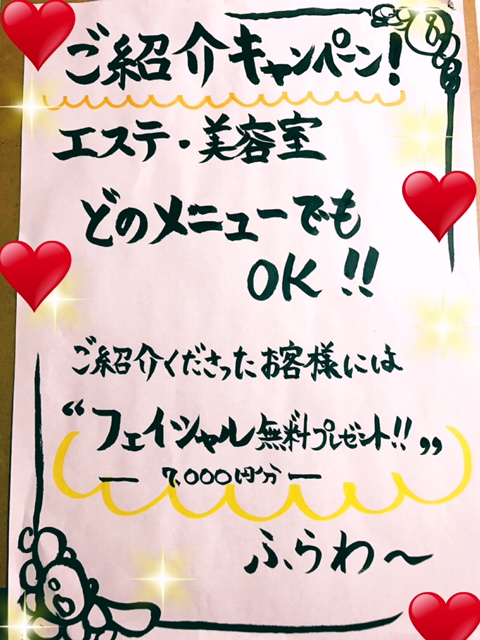 ご紹介キャンペーン!
エステ・美容室
どのメニューでも
OK!!
ご紹介くださったお客様には
“フェイシャル無料プレゼント!!”
― 7,000円分 ―
ふらわ〜